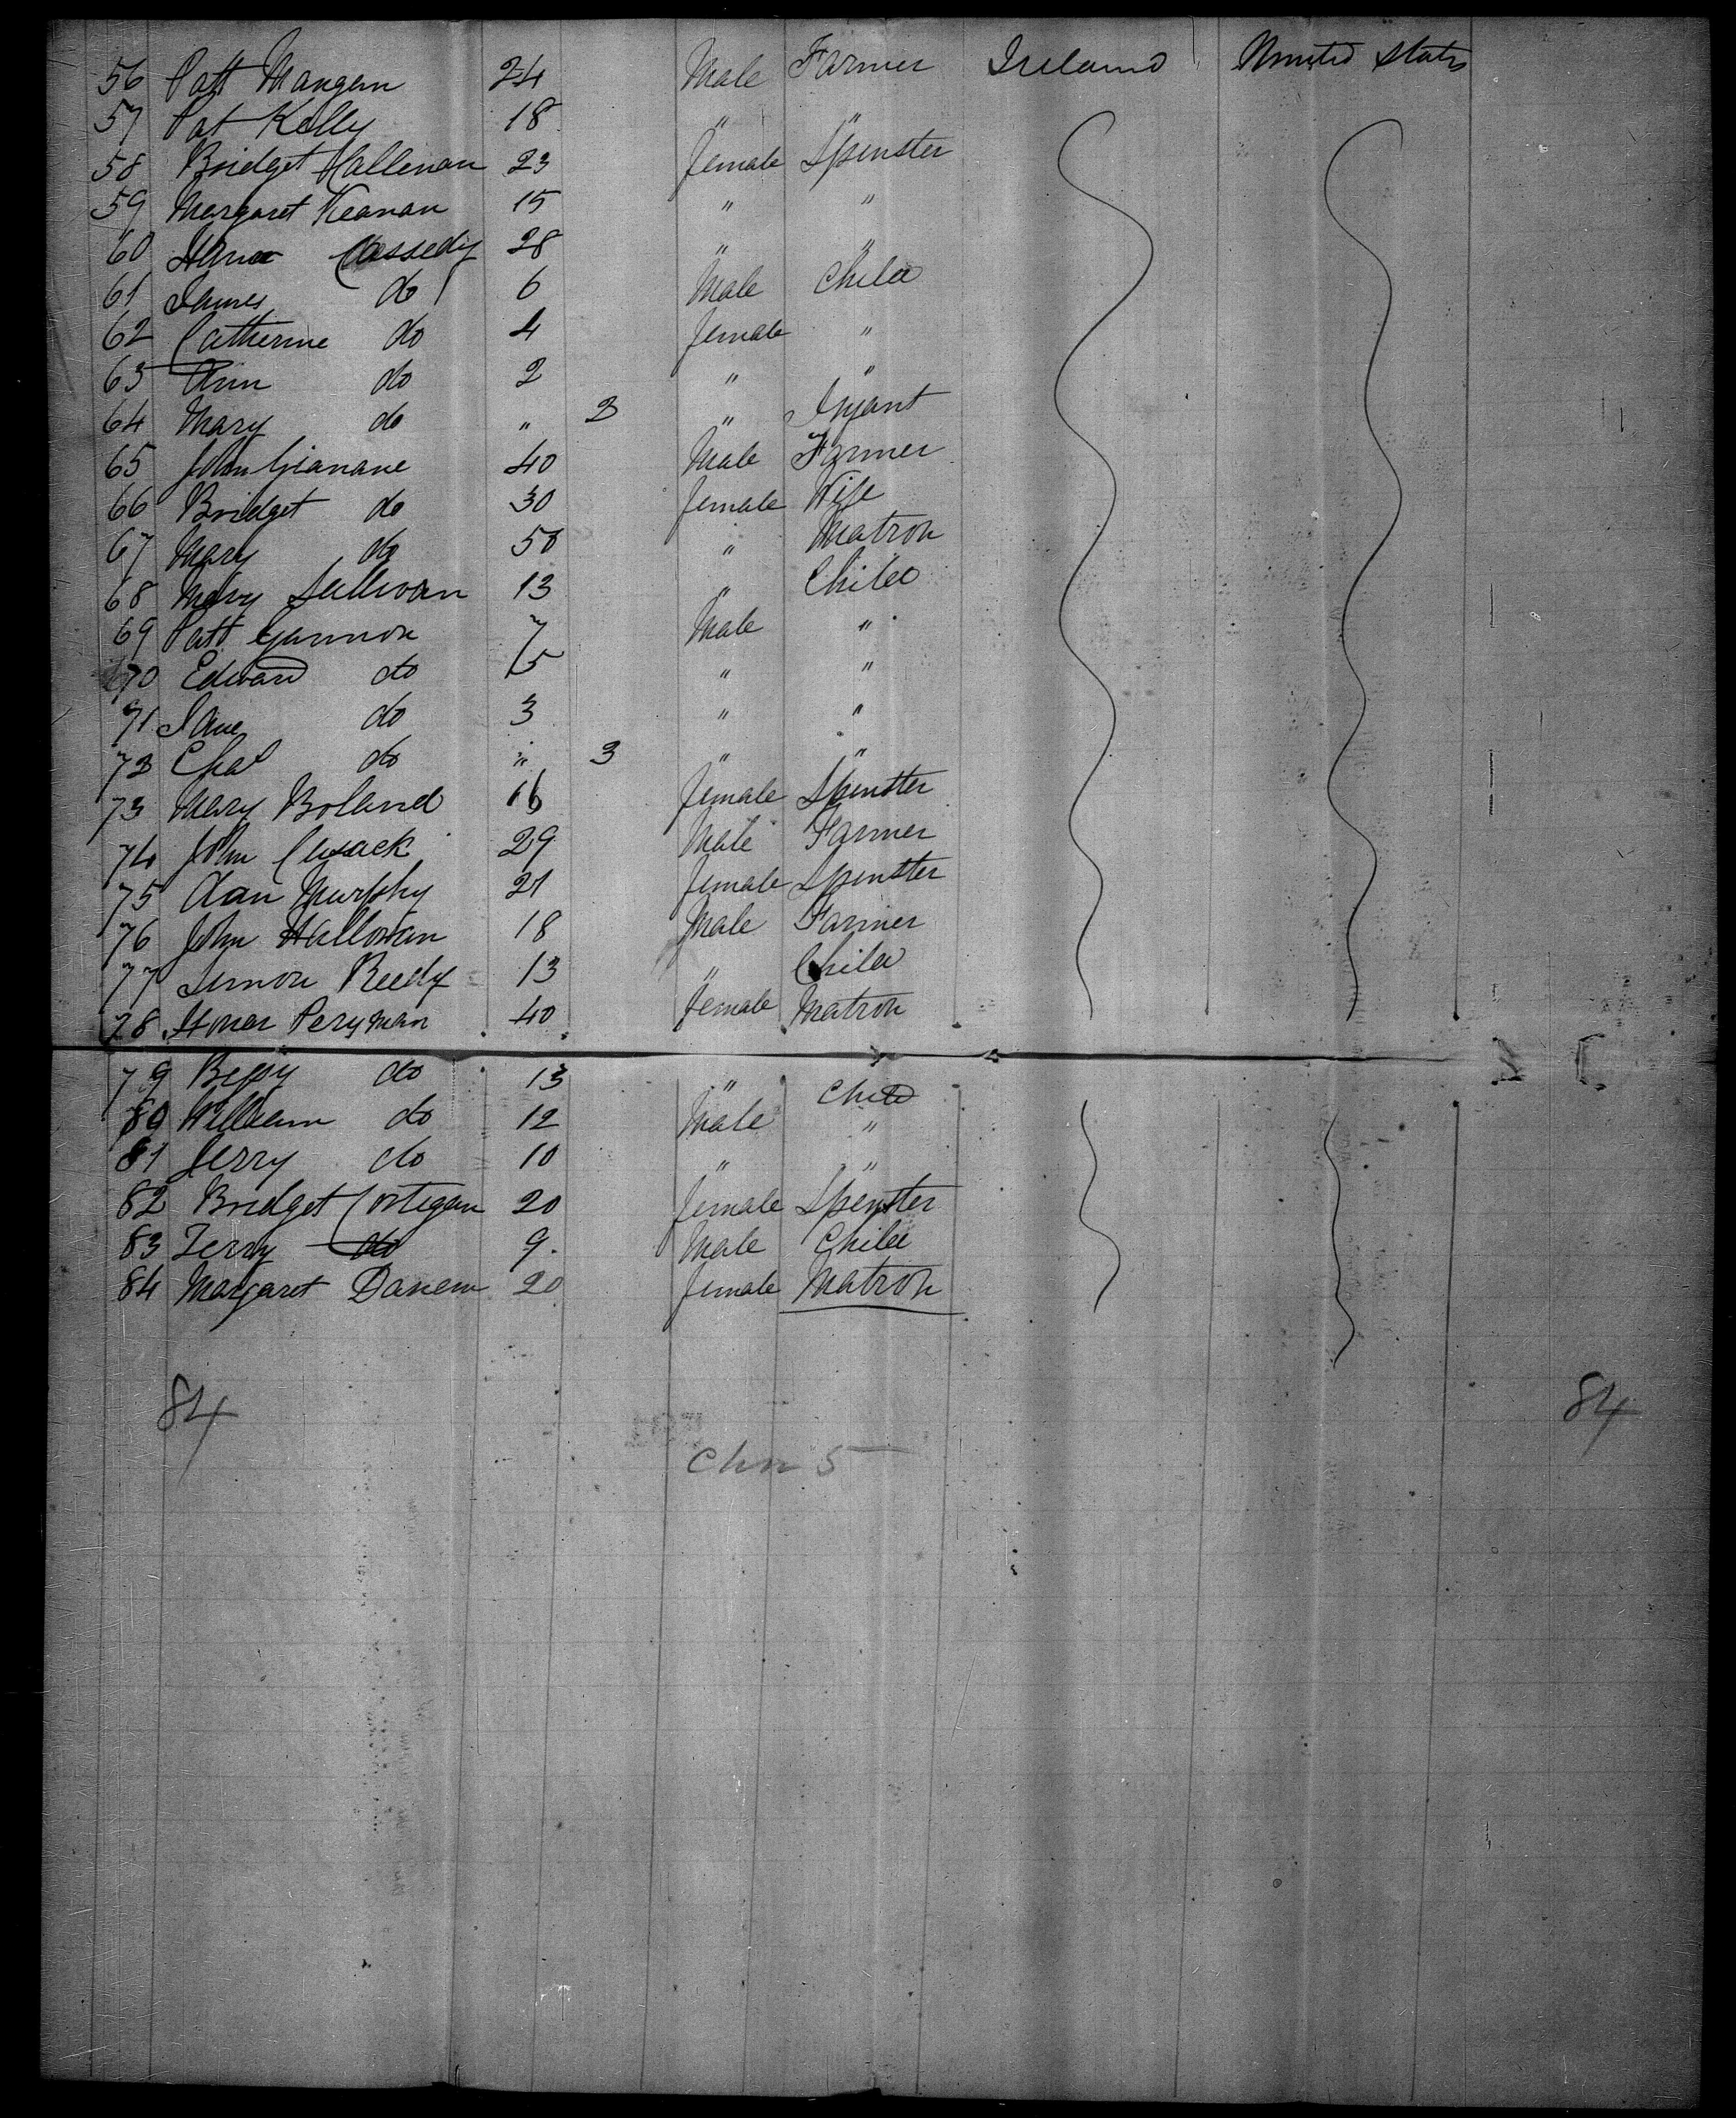 56 Patt Mangem 24 Male Farmer Ireland United States
57 Pat Kelly 18 " "
58 Bridget Hallenan 23 female Spinster
59 Margaret Keanan 15 " "
60 Hana Cassedy 28 " "
61 James do 6 Male Child
62 Catherine do 4 female "
63 Ann do 2 " "
64 Mary do " 2 " Infant
65 John Gianane 40 Male Farmer
66 Bridget do 30 female Wife
67 Mary do 50 " Matron
68 Mary Sullivan 13 " Child
69 Patt Gannon 7 Male "
70 Edward do 5 " "
71 do 3 " "
72 Chas do " 3 " "
73 Mary Boland 16 female Spinster
74 John Cusack 29 Male Farmer
75 Ann Murphy 21 female Spinster
76 John Halloran 18 Male Farmer
77 Simon Reedy 13 " Child
78 Honer Peryman 40 female Matron
79 Bessy do 13 " Child
80 William do 12 Male "
81 Jerry do 10 " "
82 Bridget Costegan 20 female Spinster
83 Terry do 9 Male Child
84 Margaret 20 female Matron
84 84
Chn 5